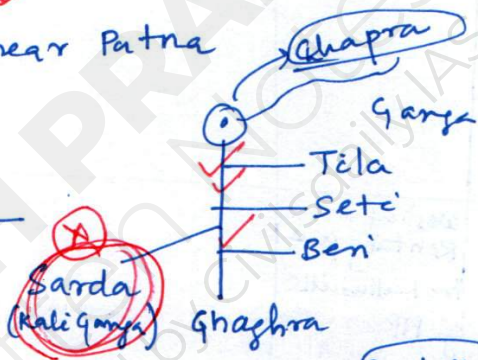 near Patna
Chapra
Ganga
Tila
Seti
Beri
Sarda
(Kali Ganga)
Ghaghra